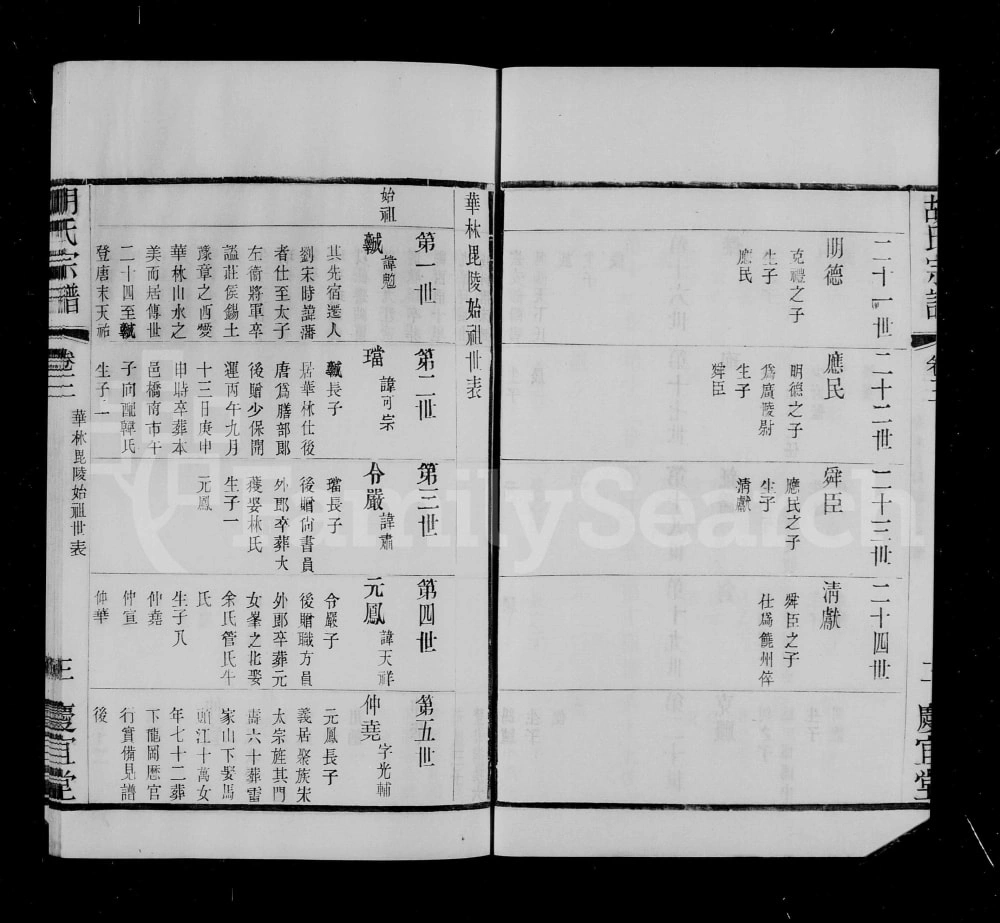 胡氏宗譜
卷二
二
慶宜堂
二十一世
朙德
克禮之子
生子
應民
二十二世
應民
明德之子
爲廣陵尉
生子
舜臣
二十三世
舜臣
應民之子
生子
清獻
二十四世
清獻
舜臣之子
仕爲饒州倅
華林毘陵始祖世表
始祖
第一世
諱勉
其先宿遷人
劉宋時諱藩
者仕至太子
左衞將軍卒
謚莊侯錫土
豫章之西愛
華林山水之
美而居傳世
二十四至
登唐末天祐
第二世
璫 諱可宗
長子
居華林仕後
唐爲膳部郎
後贈少保開
運丙午九月
十三日庚申
申時卒葬本
邑橋南市午
子向配韓氏
生子二
第三世
令嚴 諱肅
璫長子
後贈尙書員
外郎卒葬大
窠娶林氏
生子一
元鳳
第四世
元鳳 諱天祥
令嚴子
後贈職方員
外郎卒葬元
女峯之北娶
余氏管氏牛
氏
生子八
仲堯
仲宣
仲華
第五世
仲堯 字光輔
元鳳長子
義居聚族宋
太宗旌其門
壽六十葬雷
家山下娶馬
頭江十萬女
年七十二葬
下龍岡厯官
行實備見譜
後
胡氏宗譜
卷二
華林毘陵始祖世表
三
慶宜堂
FamilySearch